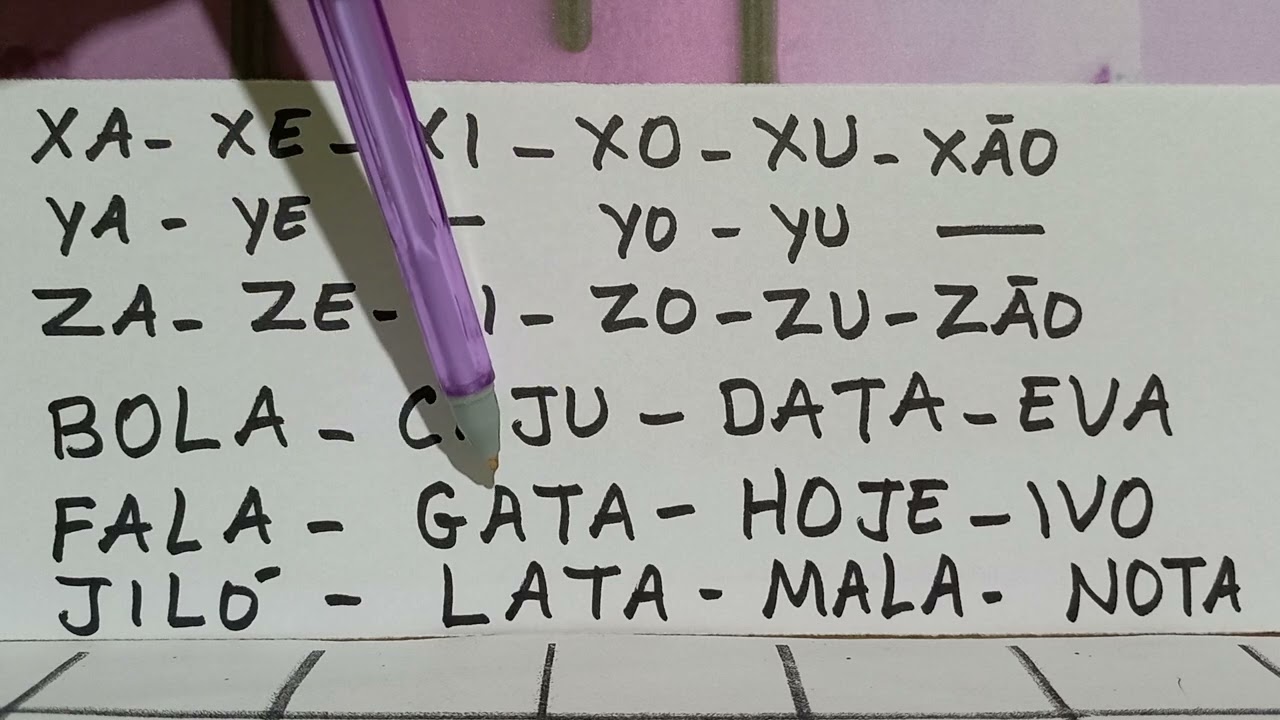 XA- XE - XI - XO - XU - XÃO
YA - YE - YO - YU —
ZA- ZE- - ZO - ZU - ZÃO
BOLA - JU - DATA - EVA
FALA - GATA - HOJE - IVO
JILÓ - LATA - MALA - NOTA